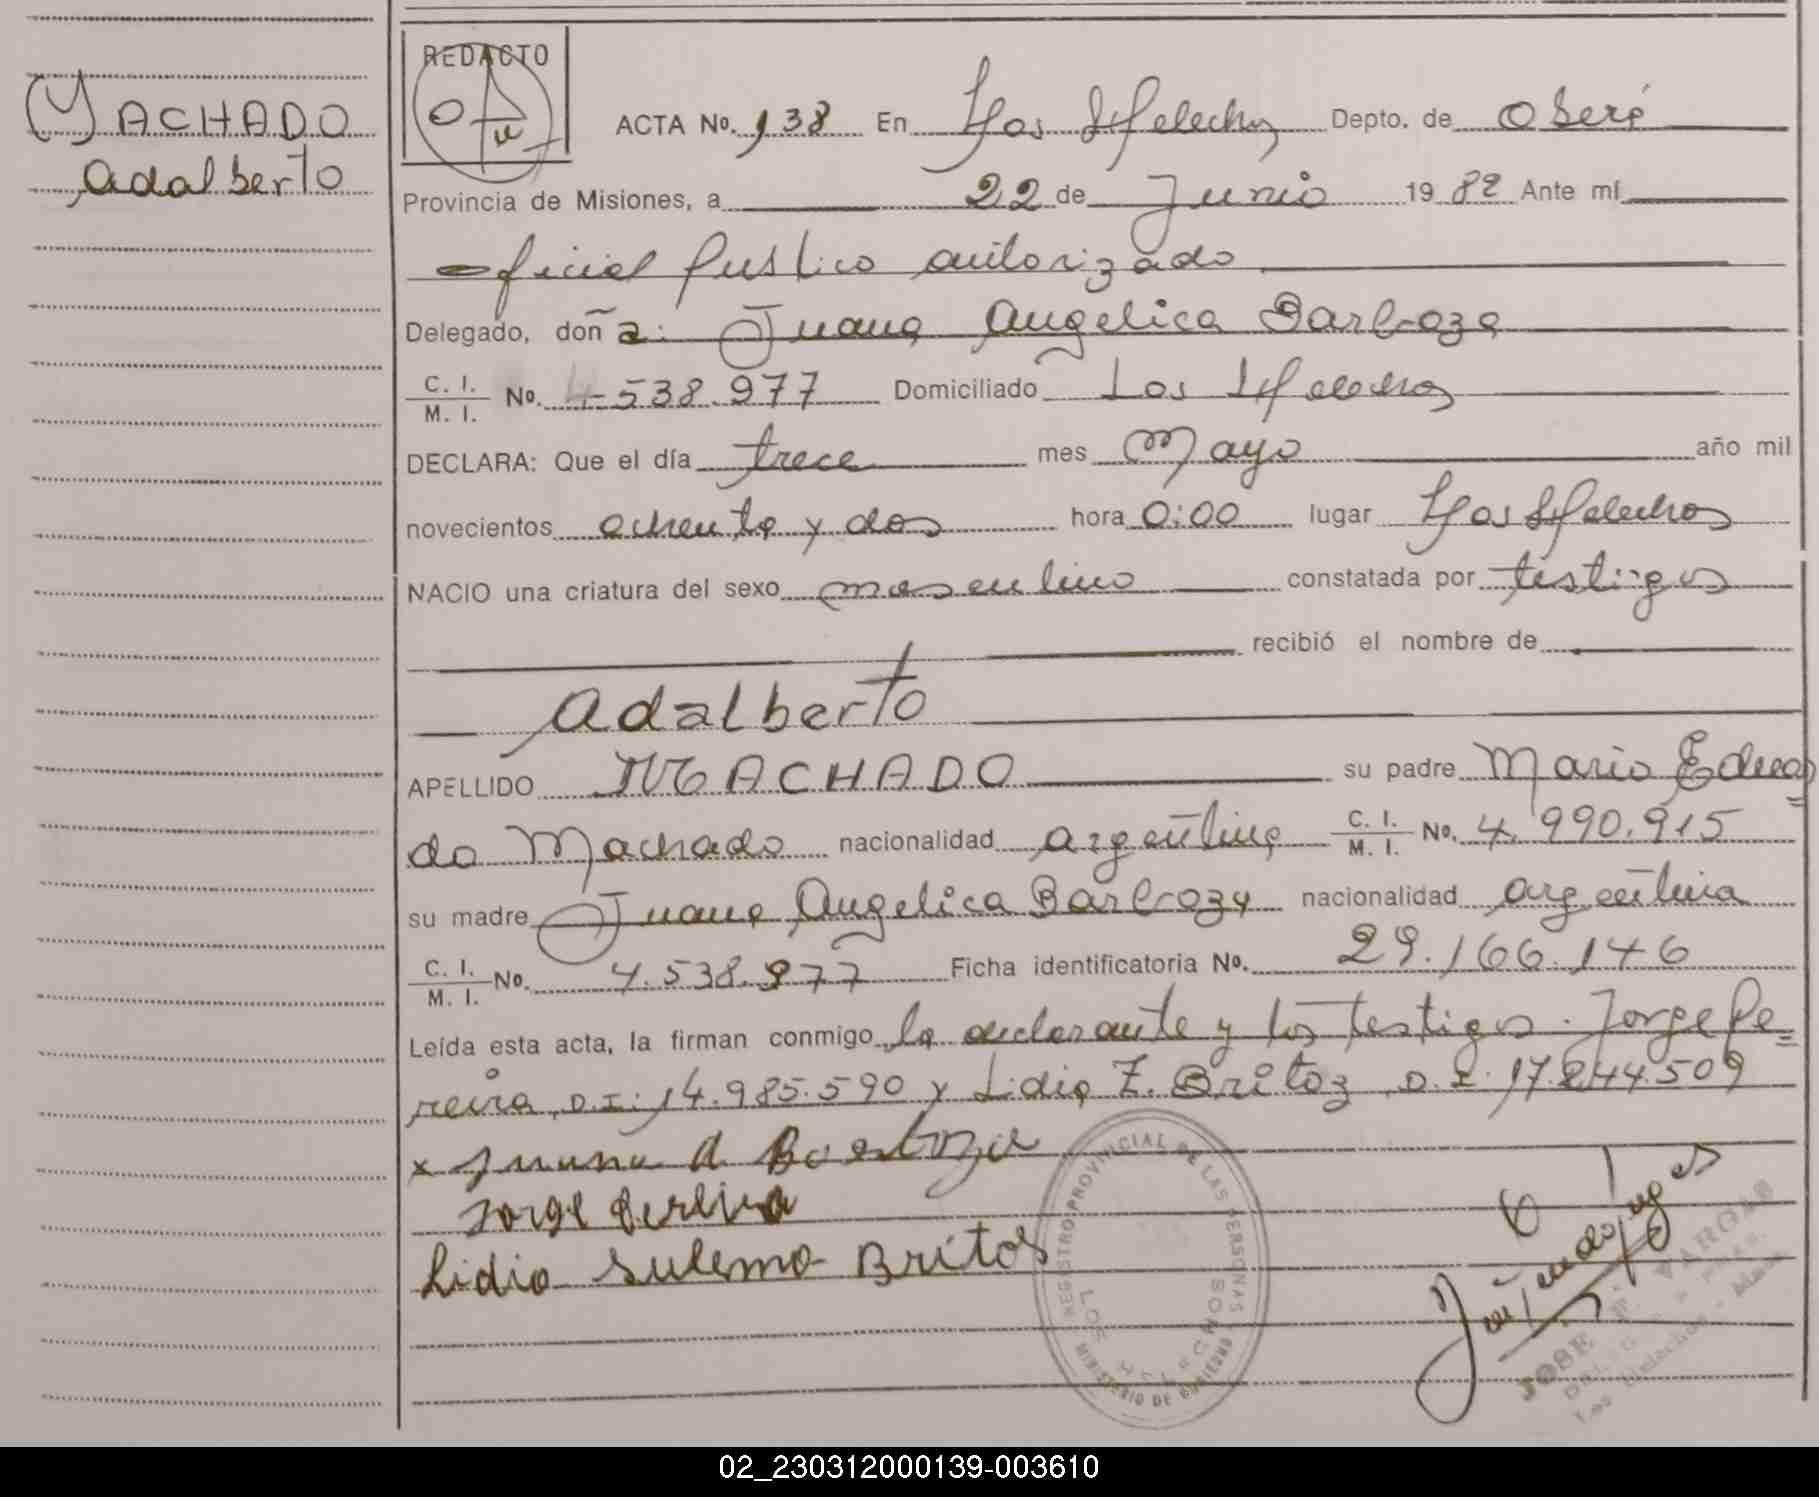 MACHADO
Adalberto
REDACTO
ACTA No. 138 En Los Helechos Depto. de Oberé
Provincia de Misiones, a 22 de Junio 1982 Ante mí
oficial Publico autorizado
Delegado, doña: Juana Angelica Barboza
C. I. / M. I. No. 4.538.977 Domiciliado Los Helechos
DECLARA: Que el día trece mes Mayo año mil
novecientos ochenta y dos hora 0:00 lugar Los Helechos
NACIO una criatura del sexo masculino constatada por testigos
recibió el nombre de
Adalberto
APELLIDO MACHADO su padre Mario Eduar=
do Machado nacionalidad argentina C. I. / M. I. No. 4.990.915
su madre Juana Angelica Barboza nacionalidad argentina
C. I. / M. I. No. 4.538.977 Ficha identificatoria No. 29.166.146
Leída esta acta, la firman conmigo la declarante y los testigos. Jorge Pe=
reira, D.I: 14.985.590 y Lidio Z. Britoz, D.I. 17.244.509
x Juana A Barboza
Jorge Pereira
Lidio Sulemo Britos
REGISTRO PROVINCIAL DE LAS PERSONAS
LOS HELECHOS
MINISTERIO DE GOBIERNO
JOSE F. VARGAS
Los Helechos - Mnes
02_230312000139-003610